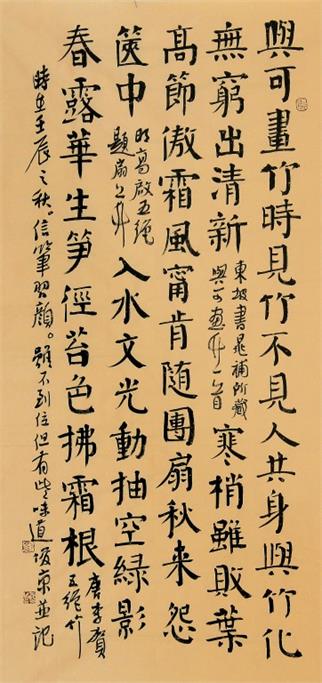 與可畫竹時見竹不見人共身與竹化
無窮出清新
東坡書晁補所藏
與可畫竹一首
寒梢雖敗葉
高節傲霜風甯肯随團扇秋来怨
篋中
明高啟五絕
題扇上竹
入水文光動抽空緑影
春露華生笋徑苔色拂霜根
唐李賀
五絕竹
時在壬辰之秋。信筆習顏。雖不到位但有些味道 東並記